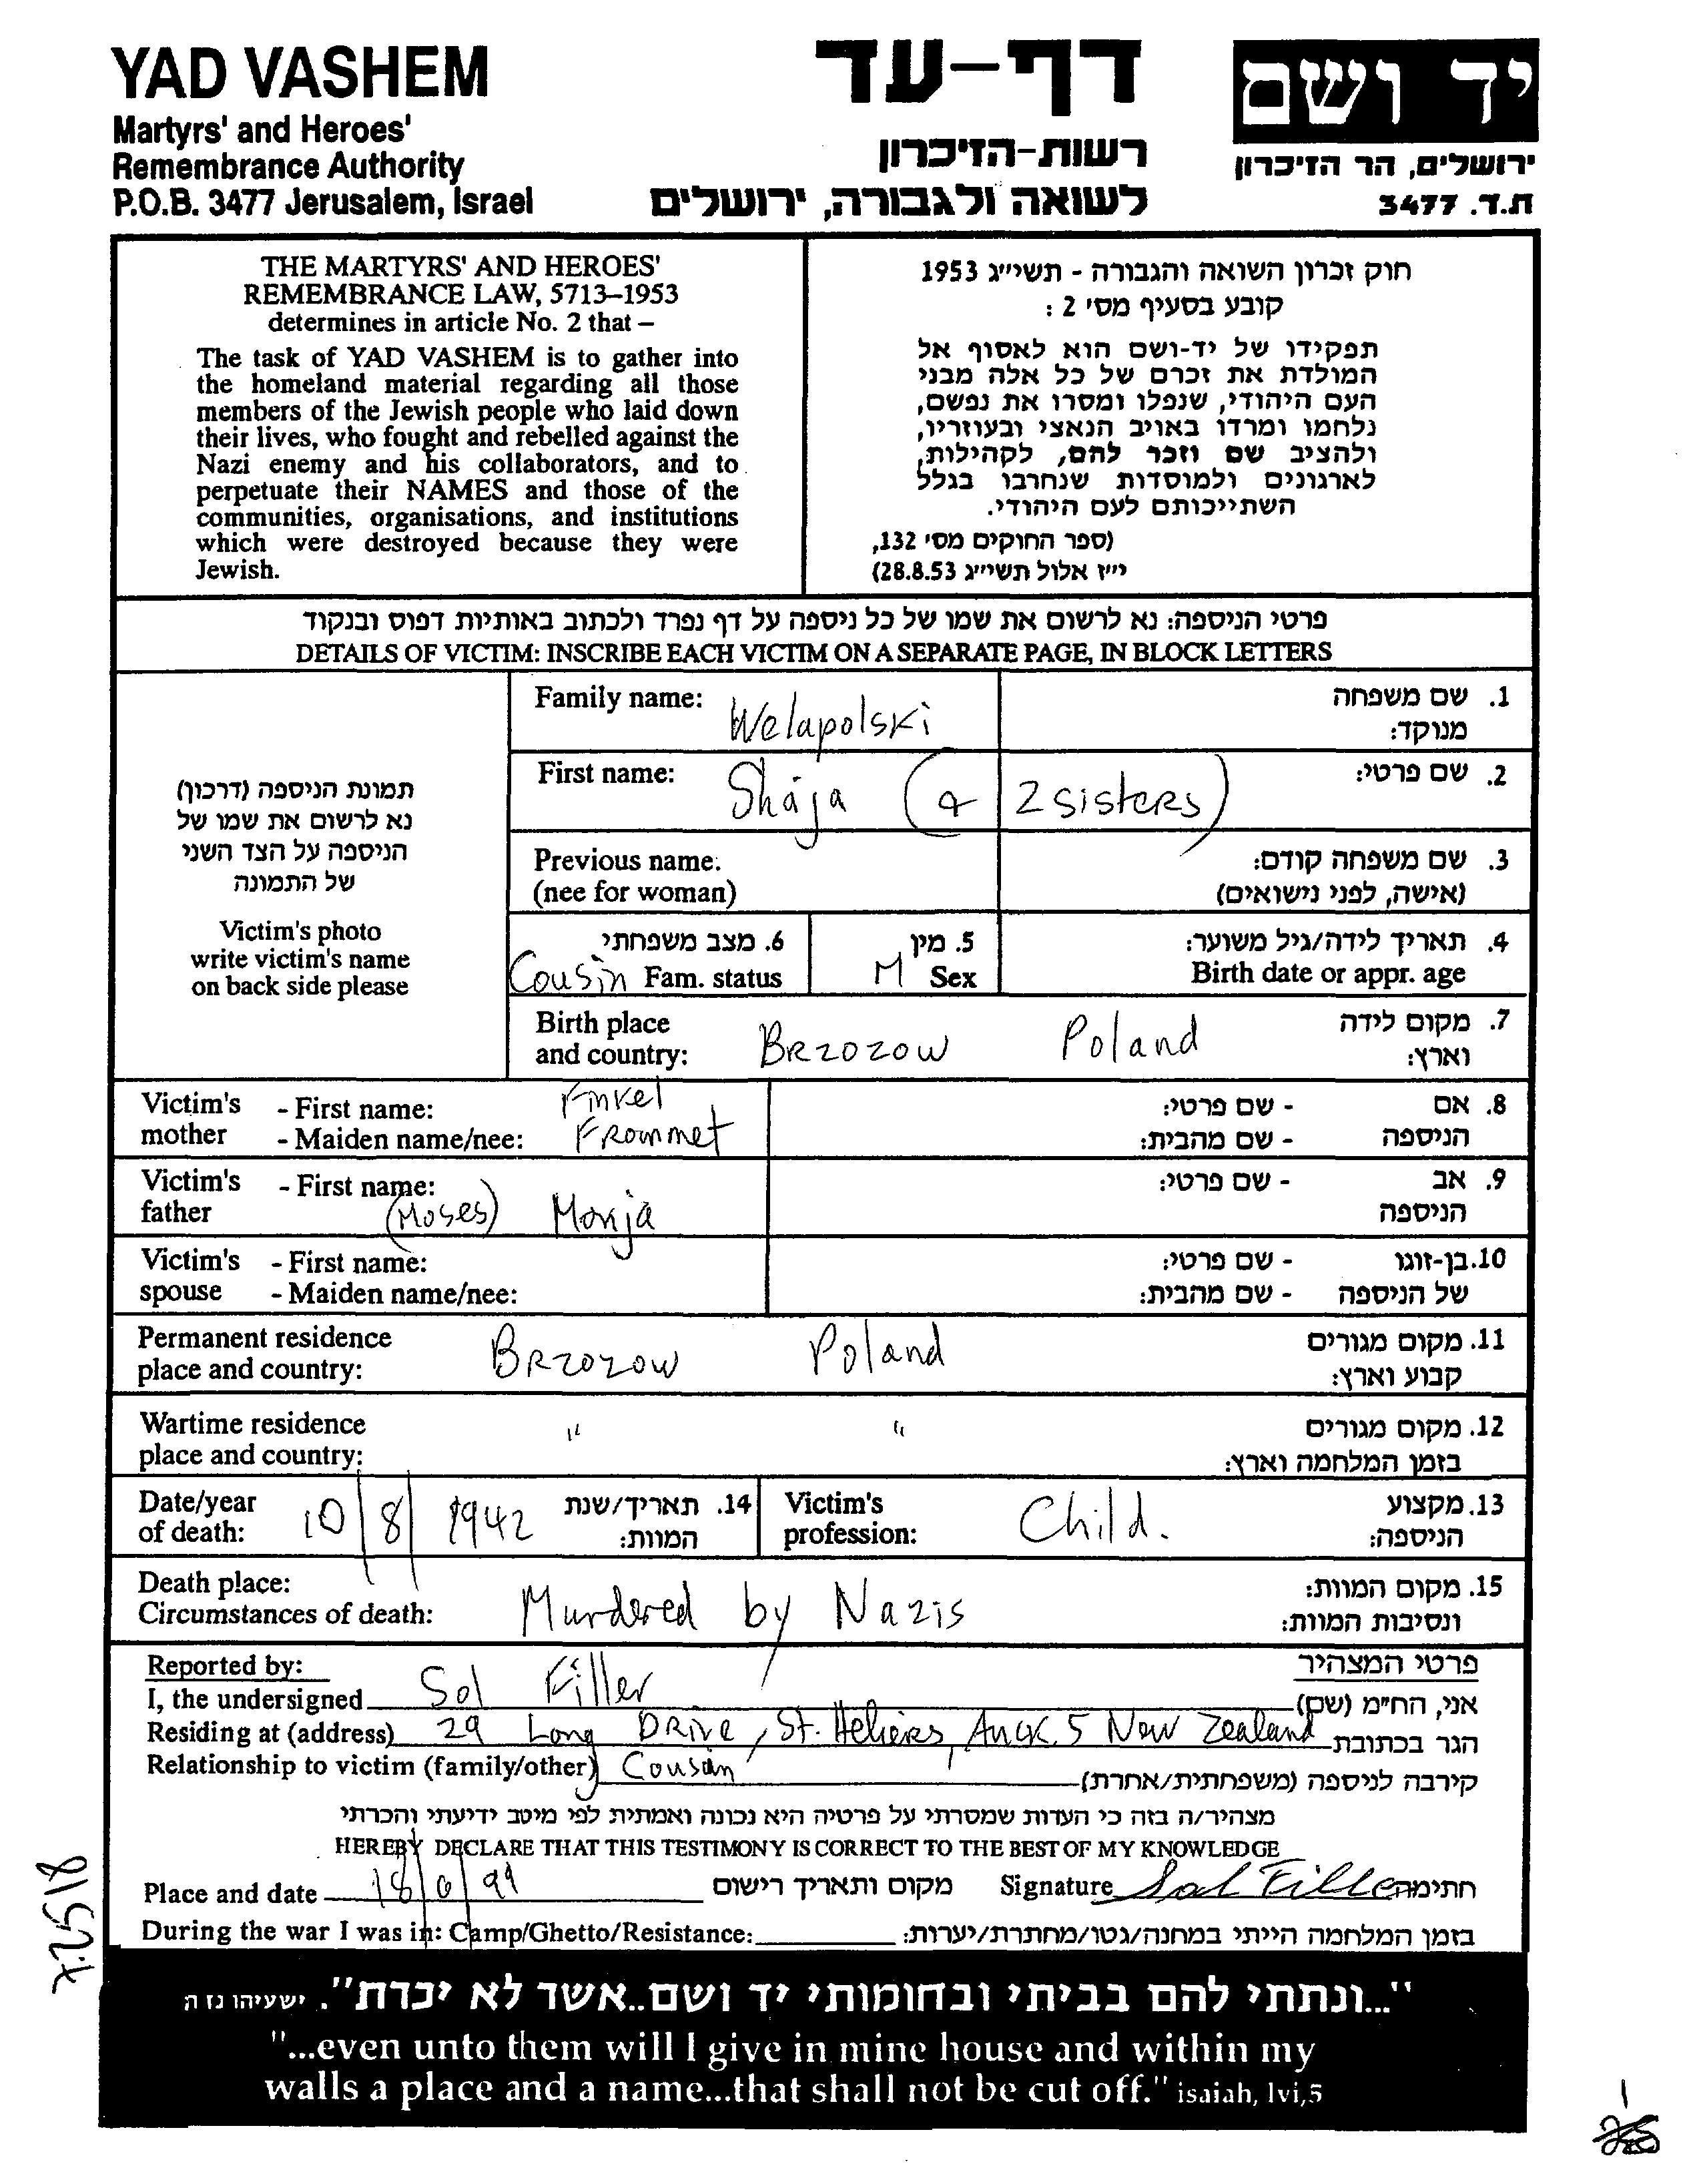 YAD VASHEM
Martyrs' and Heroes'
Remembrance Authority
P.O.B. 3477 Jerusalem, Israel
דף-עד
רשות-הזיכרון
לשואה ולגבורה, ירושלים
יד ושם
ירושלים, הר הזיכרון
ת.ד. 3477
THE MARTYRS' AND HEROES'
REMEMBRANCE LAW, 5713–1953
determines in article No. 2 that –
The task of YAD VASHEM is to gather into
the homeland material regarding all those
members of the Jewish people who laid down
their lives, who fought and rebelled against the
Nazi enemy and his collaborators, and to
perpetuate their NAMES and those of the
communities, organisations, and institutions
which were destroyed because they were
Jewish.
חוק זכרון השואה והגבורה - תשי״ג 1953
קובע בסעיף מס' 2 :
תפקידו של יד-ושם הוא לאסוף אל
המולדת את זכרם של כל אלה מבני
העם היהודי, שנפלו ומסרו את נפשם,
נלחמו ומרדו באויב הנאצי ובעוזריו,
ולהציב שם וזכר להם, לקהילות,
לארגונים ולמוסדות שנחרבו בגלל
השתייכותם לעם היהודי.
(ספר החוקים מס' 132,
י״ז אלול תשי״ג 28.8.53)
פרטי הניספה: נא לרשום את שמו של כל ניספה על דף נפרד ולכתוב באותיות דפוס ובנקוד
DETAILS OF VICTIM: INSCRIBE EACH VICTIM ON A SEPARATE PAGE, IN BLOCK LETTERS
תמונת הניספה (דרכון)
נא לרשום את שמו של
הניספה על הצד השני
של התמונה
Victim's photo
write victim's name
on back side please
Family name: Welapolski 1. שם משפחה
מנוקד:
First name: Shaja (& 2 sisters) 2. שם פרטי:
Previous name: 3. שם משפחה קודם:
(nee for woman) (אישה, לפני נישואים)
6. מצב משפחתי 5. מין 4. תאריך לידה/גיל משוער:
Cousin Fam. status M Sex Birth date or appr. age
Birth place 7. מקום לידה
and country: Brzozow Poland וארץ:
Victim's - First name: Finkel - שם פרטי: 8. אם
mother - Maiden name/nee: Frommet - שם מהבית: הניספה
Victim's - First name: - שם פרטי: 9. אב
father (Moses) Monja הניספה
Victim's - First name: - שם פרטי: 10. בן-זוגו
spouse - Maiden name/nee: - שם מהבית: של הניספה
Permanent residence 11. מקום מגורים
place and country: Brzozow Poland קבוע וארץ:
Wartime residence " " 12. מקום מגורים
place and country: בזמן המלחמה וארץ:
Date/year 14. תאריך/שנת Victim's 13. מקצוע
of death: 10/8/1942 המוות: profession: Child. הניספה:
Death place: 15. מקום המוות:
Circumstances of death: Murdered by Nazis ונסיבות המוות:
Reported by: פרטי המצהיר
I, the undersigned Sol Filler אני, הח״מ (שם)
Residing at (address) 29 Long Drive, St. Heliers, Auck 5 New Zealand הגר בכתובת
Relationship to victim (family/other) Cousin קירבה לניספה (משפחתית/אחרת)
מצהיר/ה בזה כי העדות שמסרתי על פרטיה היא נכונה ואמתית לפי מיטב ידיעתי והכרתי
HEREBY DECLARE THAT THIS TESTIMONY IS CORRECT TO THE BEST OF MY KNOWLEDGE
Place and date 18/6/99 מקום ותאריך רישום Signature Sol Filler חתימה
During the war I was in: Camp/Ghetto/Resistance: בזמן המלחמה הייתי במחנה/גטו/מחתרת/יערות:
"...ונתתי להם בביתי ובחומותי יד ושם..אשר לא יכרת". ישעיהו נו ה
"...even unto them will I give in mine house and within my
walls a place and a name...that shall not be cut off." isaiah, lvi,5